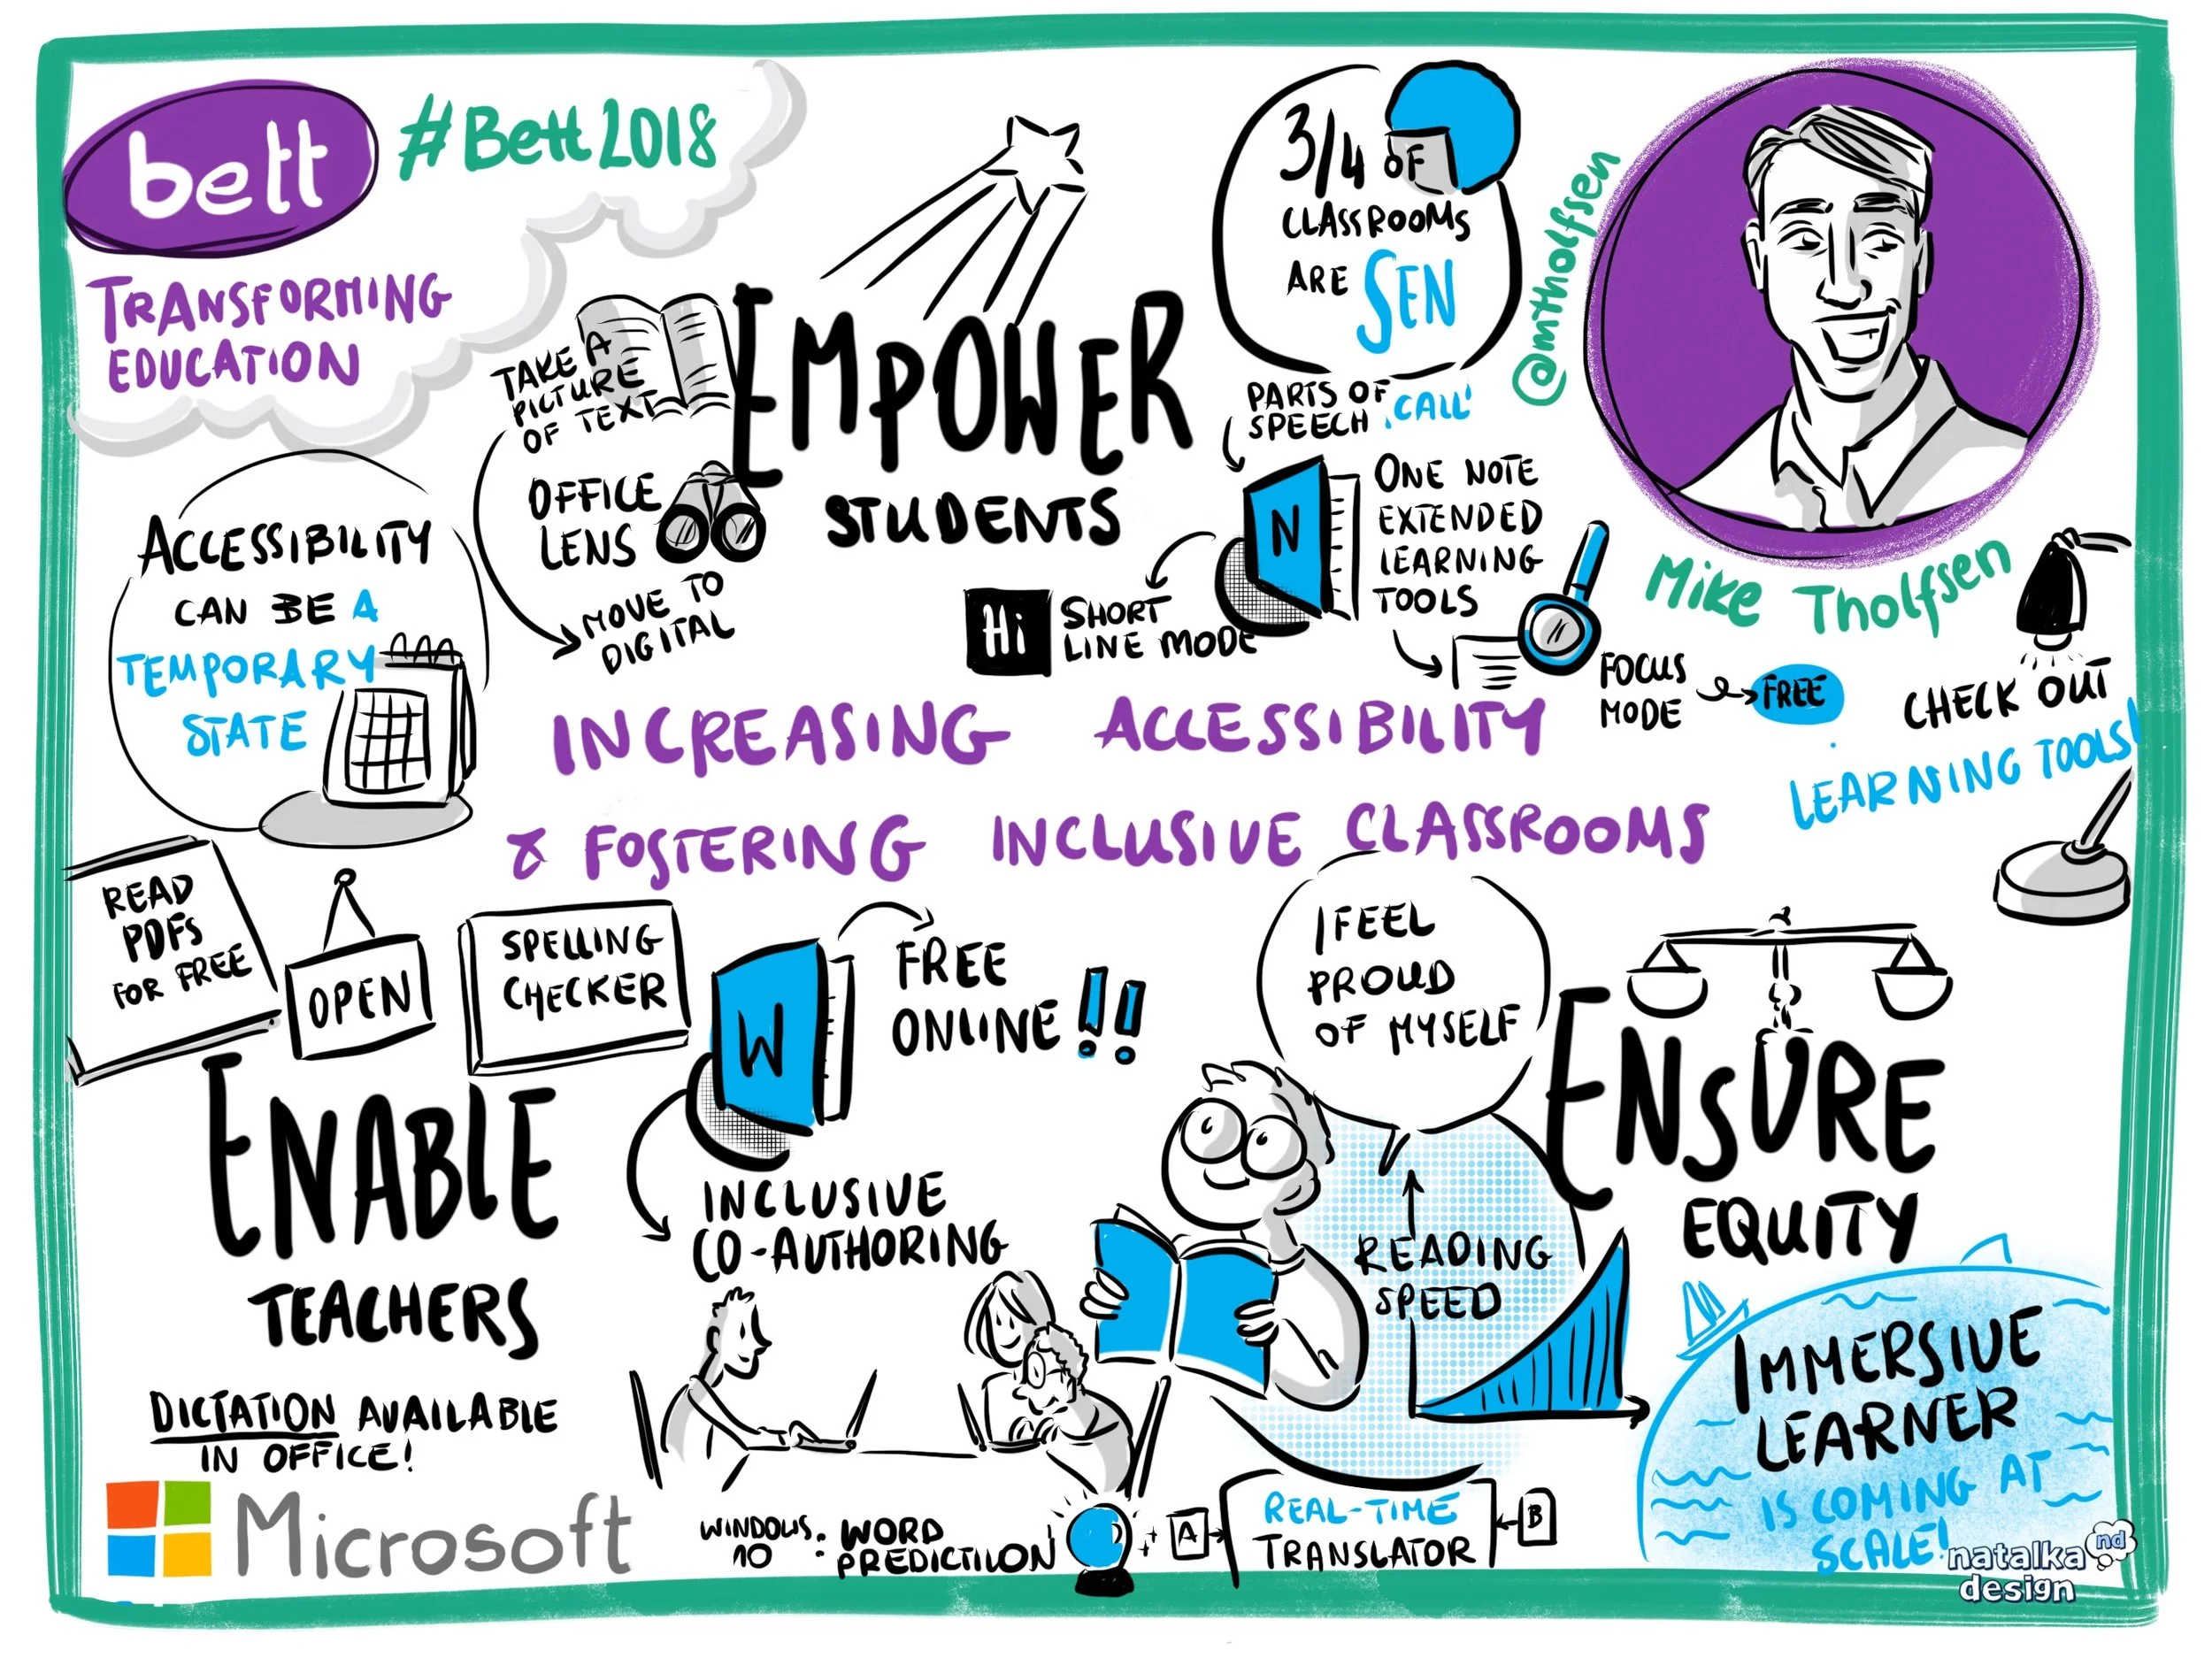 bett
#Bett2018
TRANSFORMING
EDUCATION
TAKE A
PICTURE
OF TEXT
OFFICE
LENS
MOVE TO
DIGITAL
EMPOWER
STUDENTS
3/4 OF
CLASSROOMS
ARE SEN
@mtholfsen
Mike Tholfsen
PARTS OF
SPEECH 'CALL'
N
ONE NOTE
EXTENDED
LEARNING
TOOLS
Hi
SHORT
LINE MODE
FOCUS
MODE
FREE
CHECK OUT
LEARNING TOOLS!
ACCESSIBILITY
CAN BE A
TEMPORARY
STATE
INCREASING ACCESSIBILITY
& FOSTERING INCLUSIVE CLASSROOMS
READ
PDFS
FOR FREE
OPEN
SPELLING
CHECKER
W
FREE
ONLINE !!
ENABLE
TEACHERS
INCLUSIVE
CO-AUTHORING
I FEEL
PROUD
OF MYSELF
READING
SPEED
ENSURE
EQUITY
IMMERSIVE
LEARNER
IS COMING AT
SCALE!
DICTATION AVAILABLE
IN OFFICE!
Microsoft
WINDOWS
10
: WORD
PREDICTIION
A
REAL-TIME
TRANSLATOR
B
natalka
design
nd